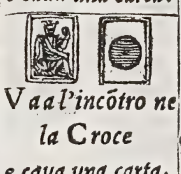 V a al'incõtro ne
la Croce
e caua una carta.